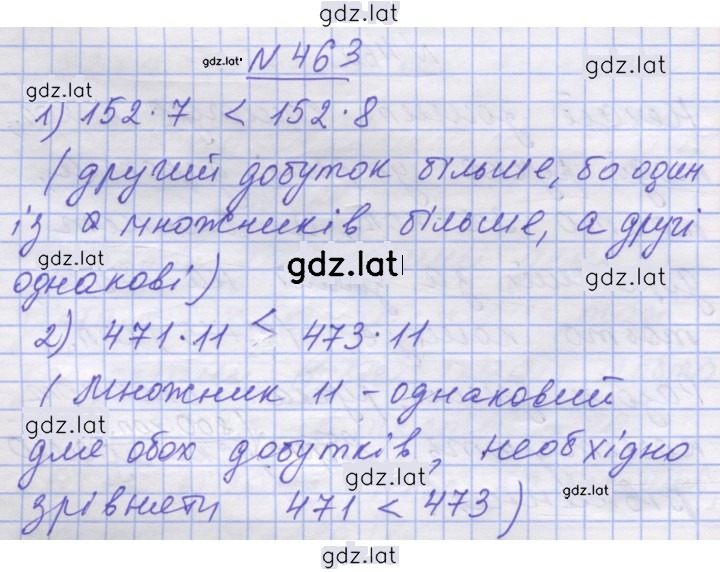 gdz.lat
gdz.lat N 463 gdz.lat
gdz.lat
1) 152·7 < 152·8
(другий добуток більше, бо один
із множників більше, а другі
gdz.lat gdz.lat gdz.lat
однакові)
2) 471·11 < 473·11
(Множник 11 - однаковий
gdz.lat gdz.lat
для обох добутків, необхідно
gdz.lat gdz.lat
зрівняти 471 < 473)
gdz.lat